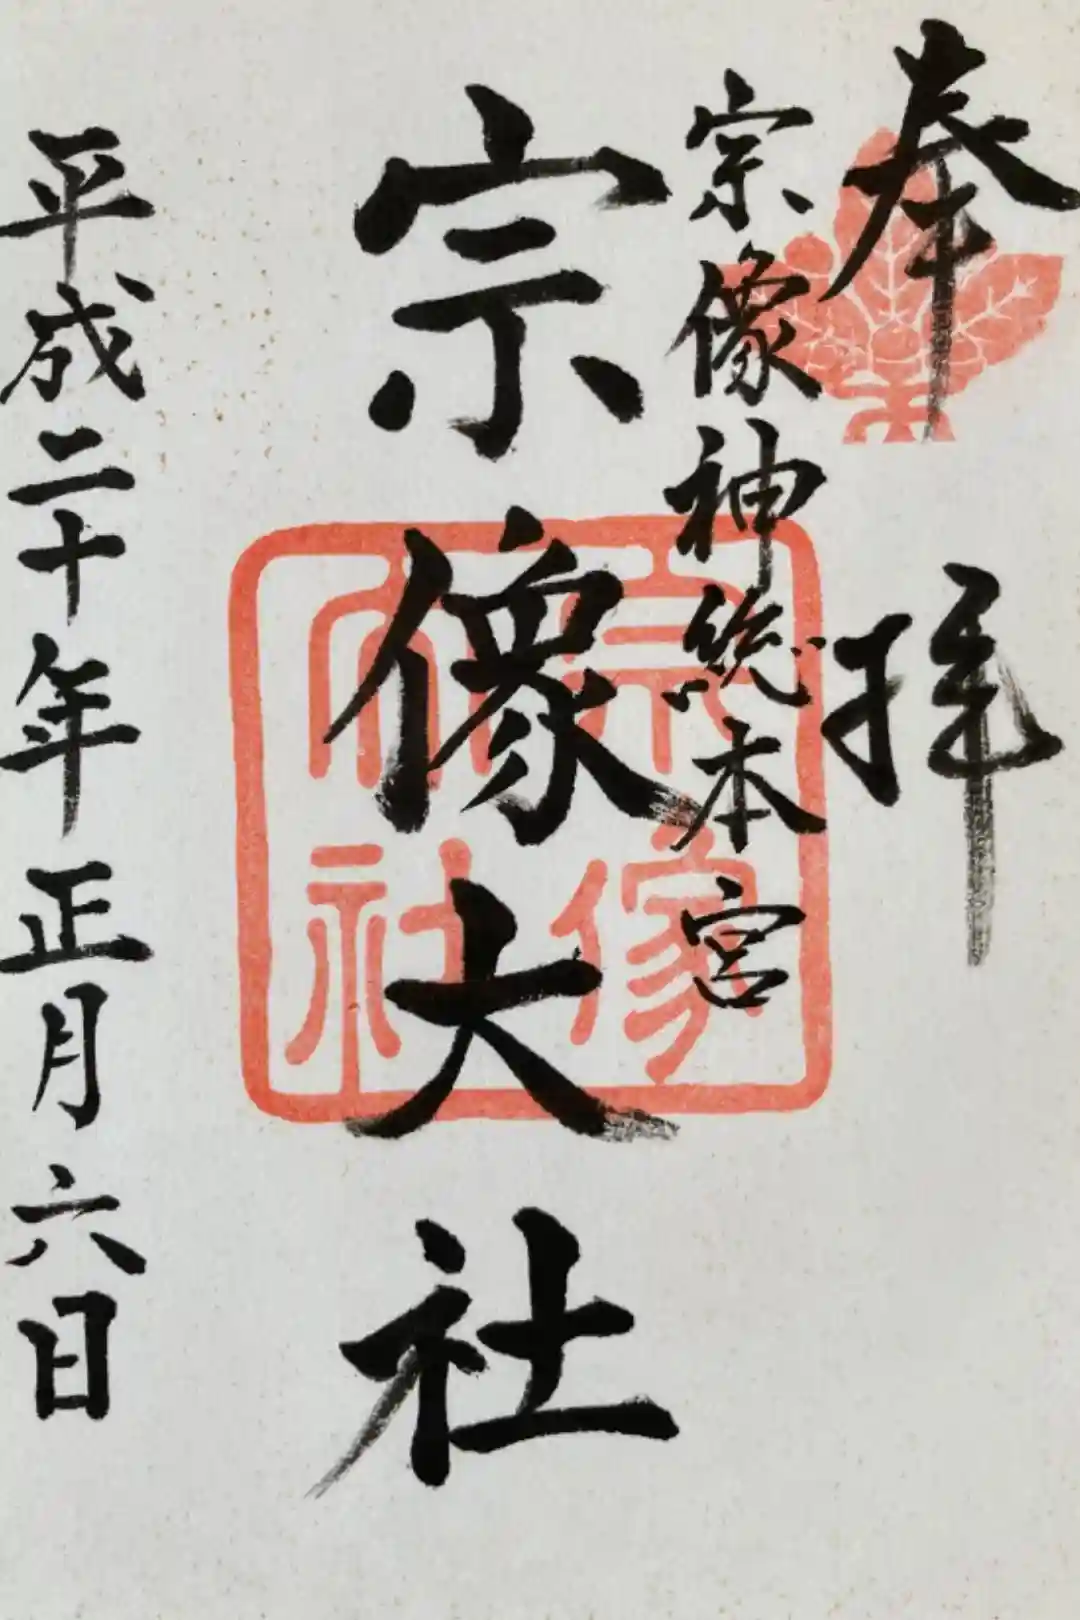 奉拝
宗像神総本宮
宗像大社
宗像大社
平成二十年正月六日